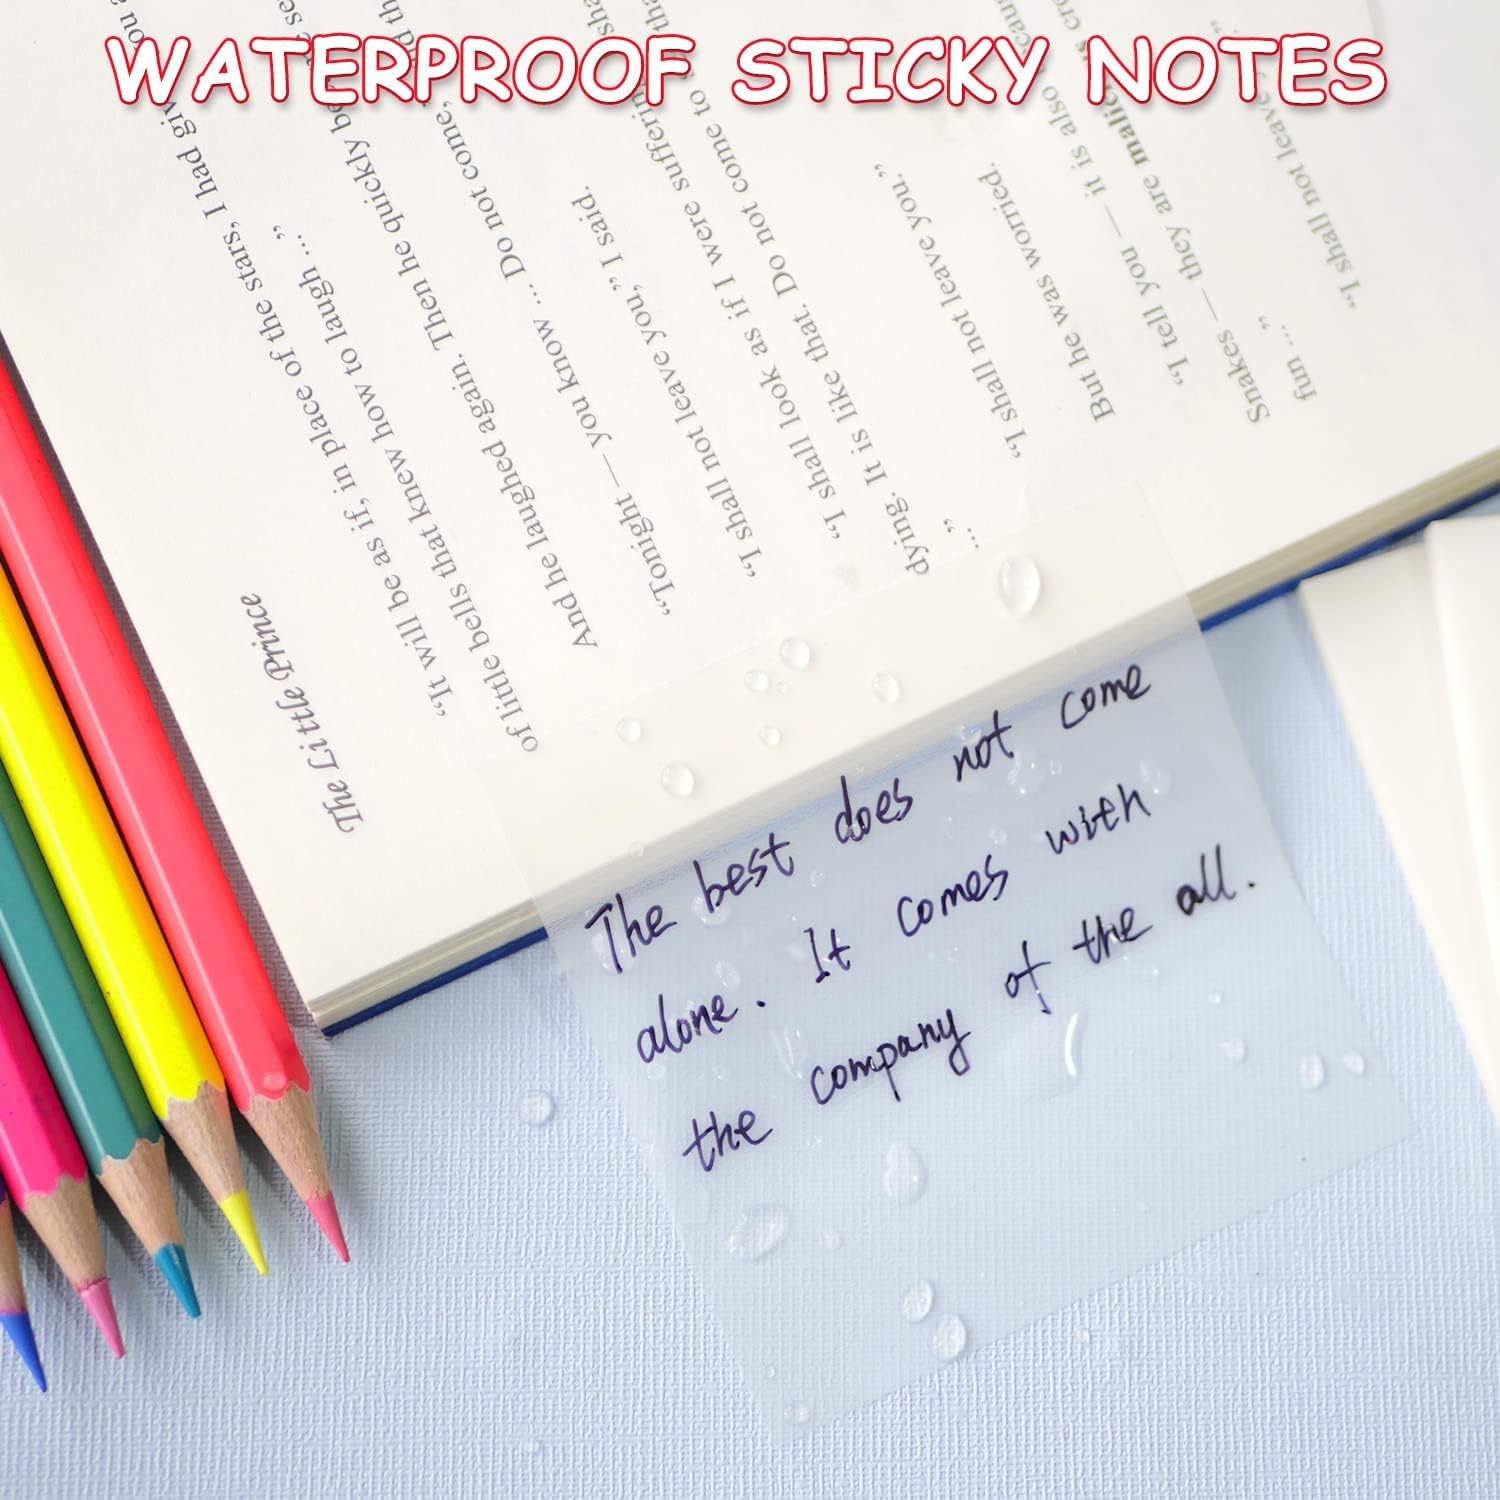 WATERPROOF STICKY NOTES
The Little Prince
"It will be as if, in place of the stars, I had giv
of little bells that knew how to laugh ..."
And he laughed again. Then he quickly be
"Tonight — you know ... Do not come,
"I shall not leave you," I said.
"I shall look as if I were suffering
dying. It is like that. Do not come to
..."
"I shall not leave you."
But he was worried.
"I tell you — it is also
Snakes — they are
fun ..."
"I shall not leave
The best does not come
alone. It comes with
the company of the all.